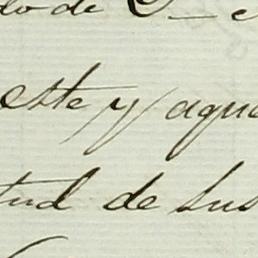 do de
este y aque
tud de sus